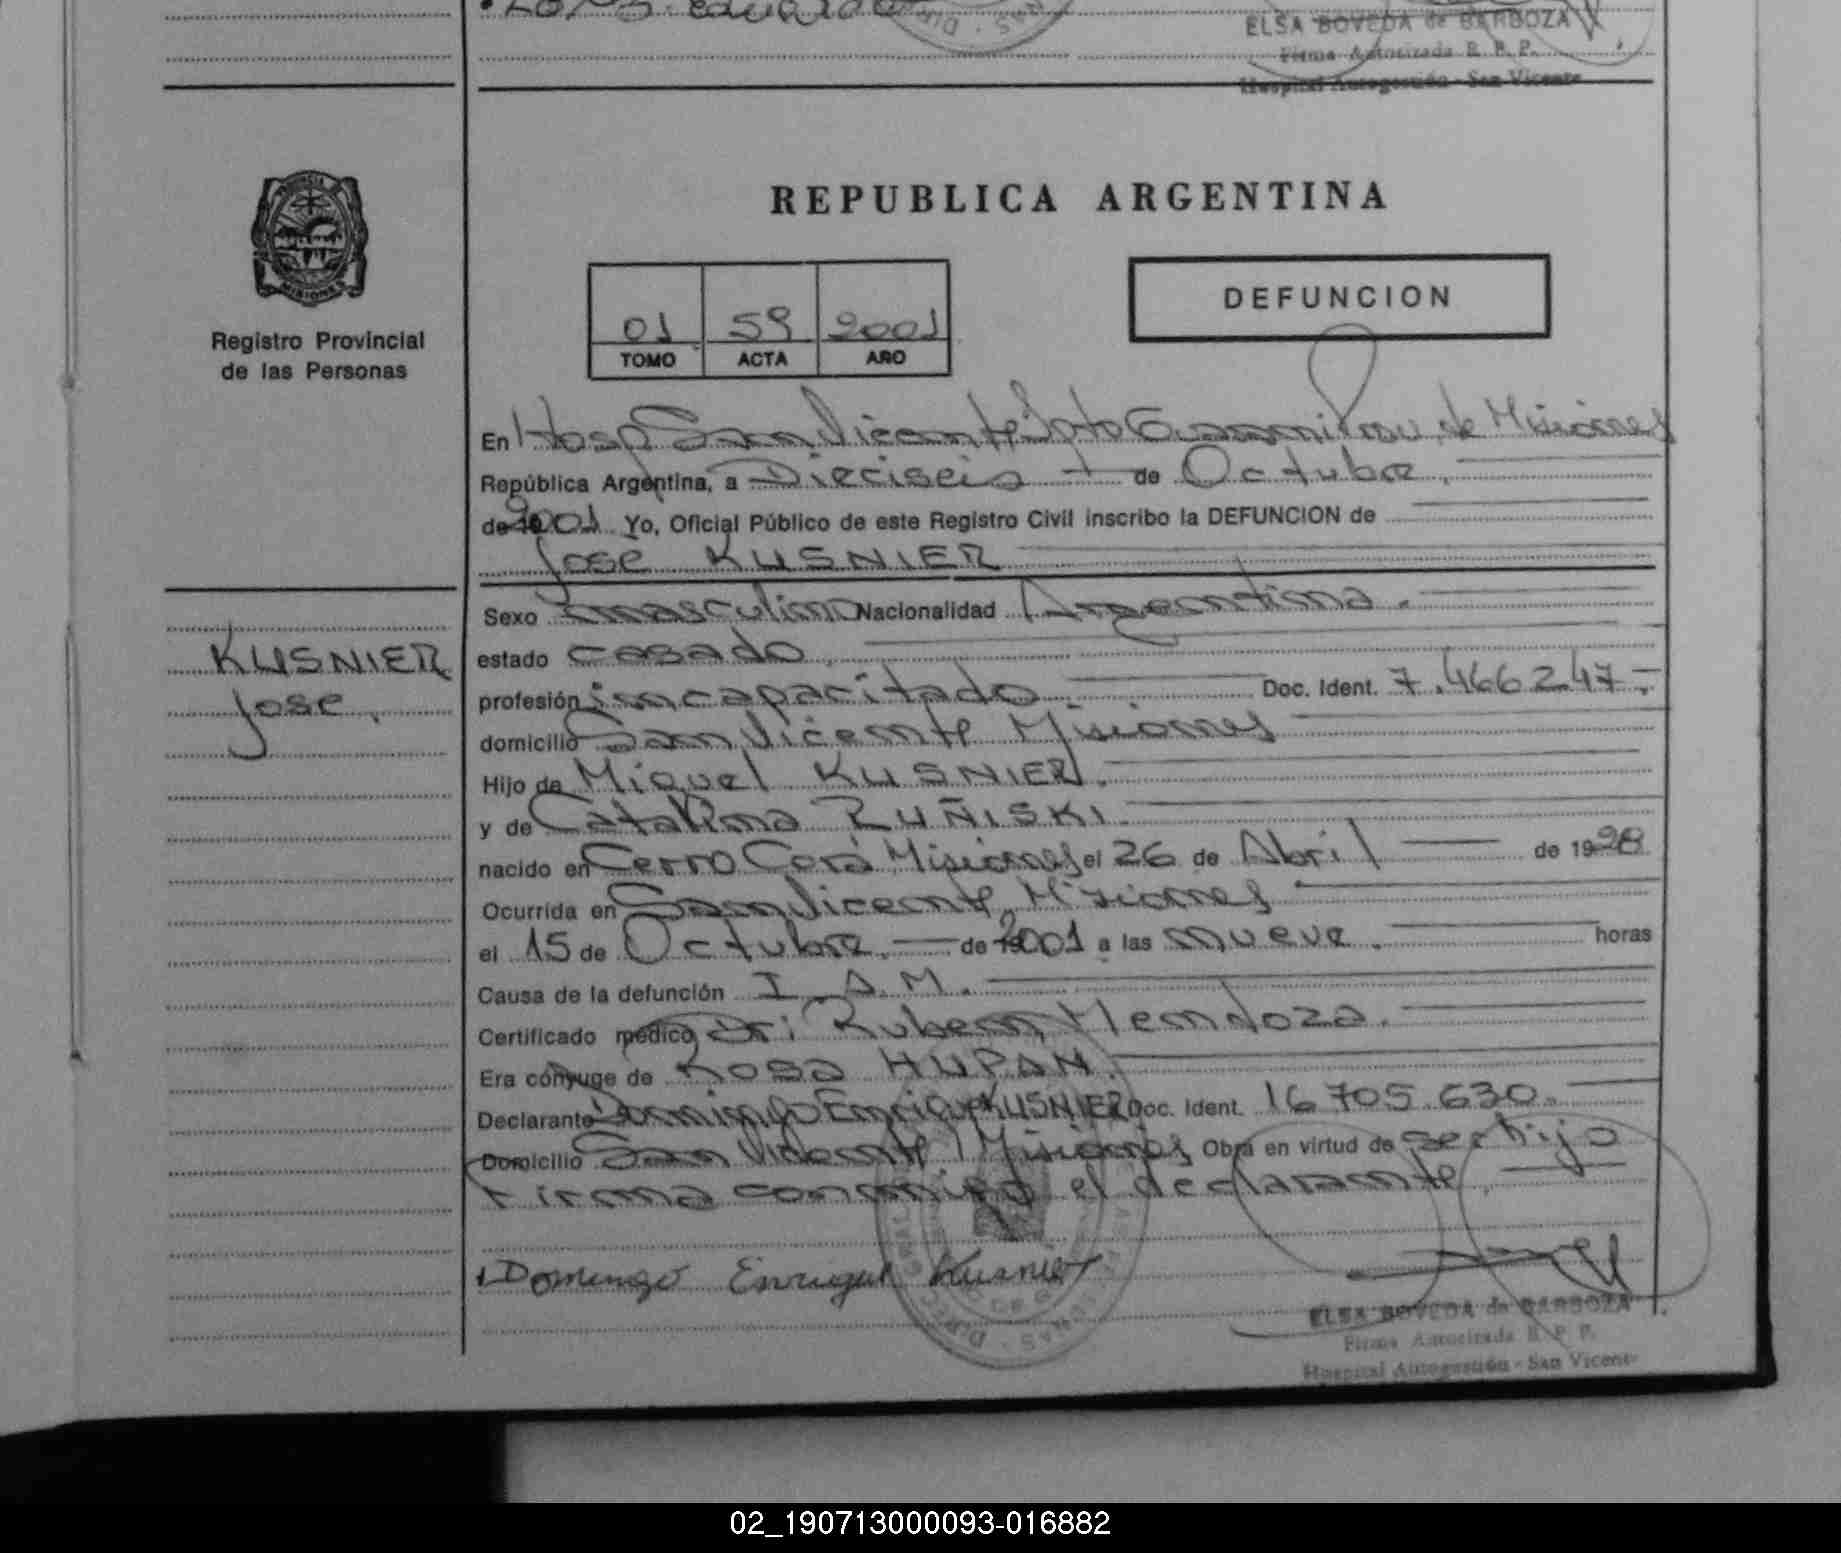 Eduardo
ELSA BOVEDA de BARBOZA
Firma Autorizada R. P. P.
Hospital Autogestión - San Vicente
PROVINCIA DE
MISIONES
Registro Provincial
de las Personas
REPUBLICA ARGENTINA
01 59 2001
TOMO ACTA AÑO
DEFUNCION
En Hosp San Vicente Dpto Guarani Prov. de Misiones
República Argentina, a Dieciseis de Octubre.
de 2001 Yo, Oficial Público de este Registro Civil inscribo la DEFUNCION de
Jose KUSNIER
KUSNIER
Jose.
Sexo masculino Nacionalidad Argentina.
estado casado.
profesión incapacitado Doc. Ident. 7.466247.-
domicilio San Vicente Misiones
Hijo de Miguel KUSNIER.
y de Catalina RUÑISKI.
nacido en Cerro Corá Misiones el 26 de Abril de 1928
Ocurrida en San Vicente, Misiones
el 15 de Octubre. de 2001 a las nueve. horas
Causa de la defunción I.A.M.
Certificado médico Dr: Ruben Mendoza.
Era cónyuge de Rosa HUPAN.
Declarante Domingo Enrique KUSNIER Doc. Ident. 16 705.630.
Domicilio San Vicente Misiones Obra en virtud de ser hijo
Firma conmigo el declarante.
Domingo Enrique Kusnier
ELSA BOVEDA de BARBOZA
Firma Autorizada R. P. P.
Hospital Autogestión - San Vicente
02_190713000093-016882